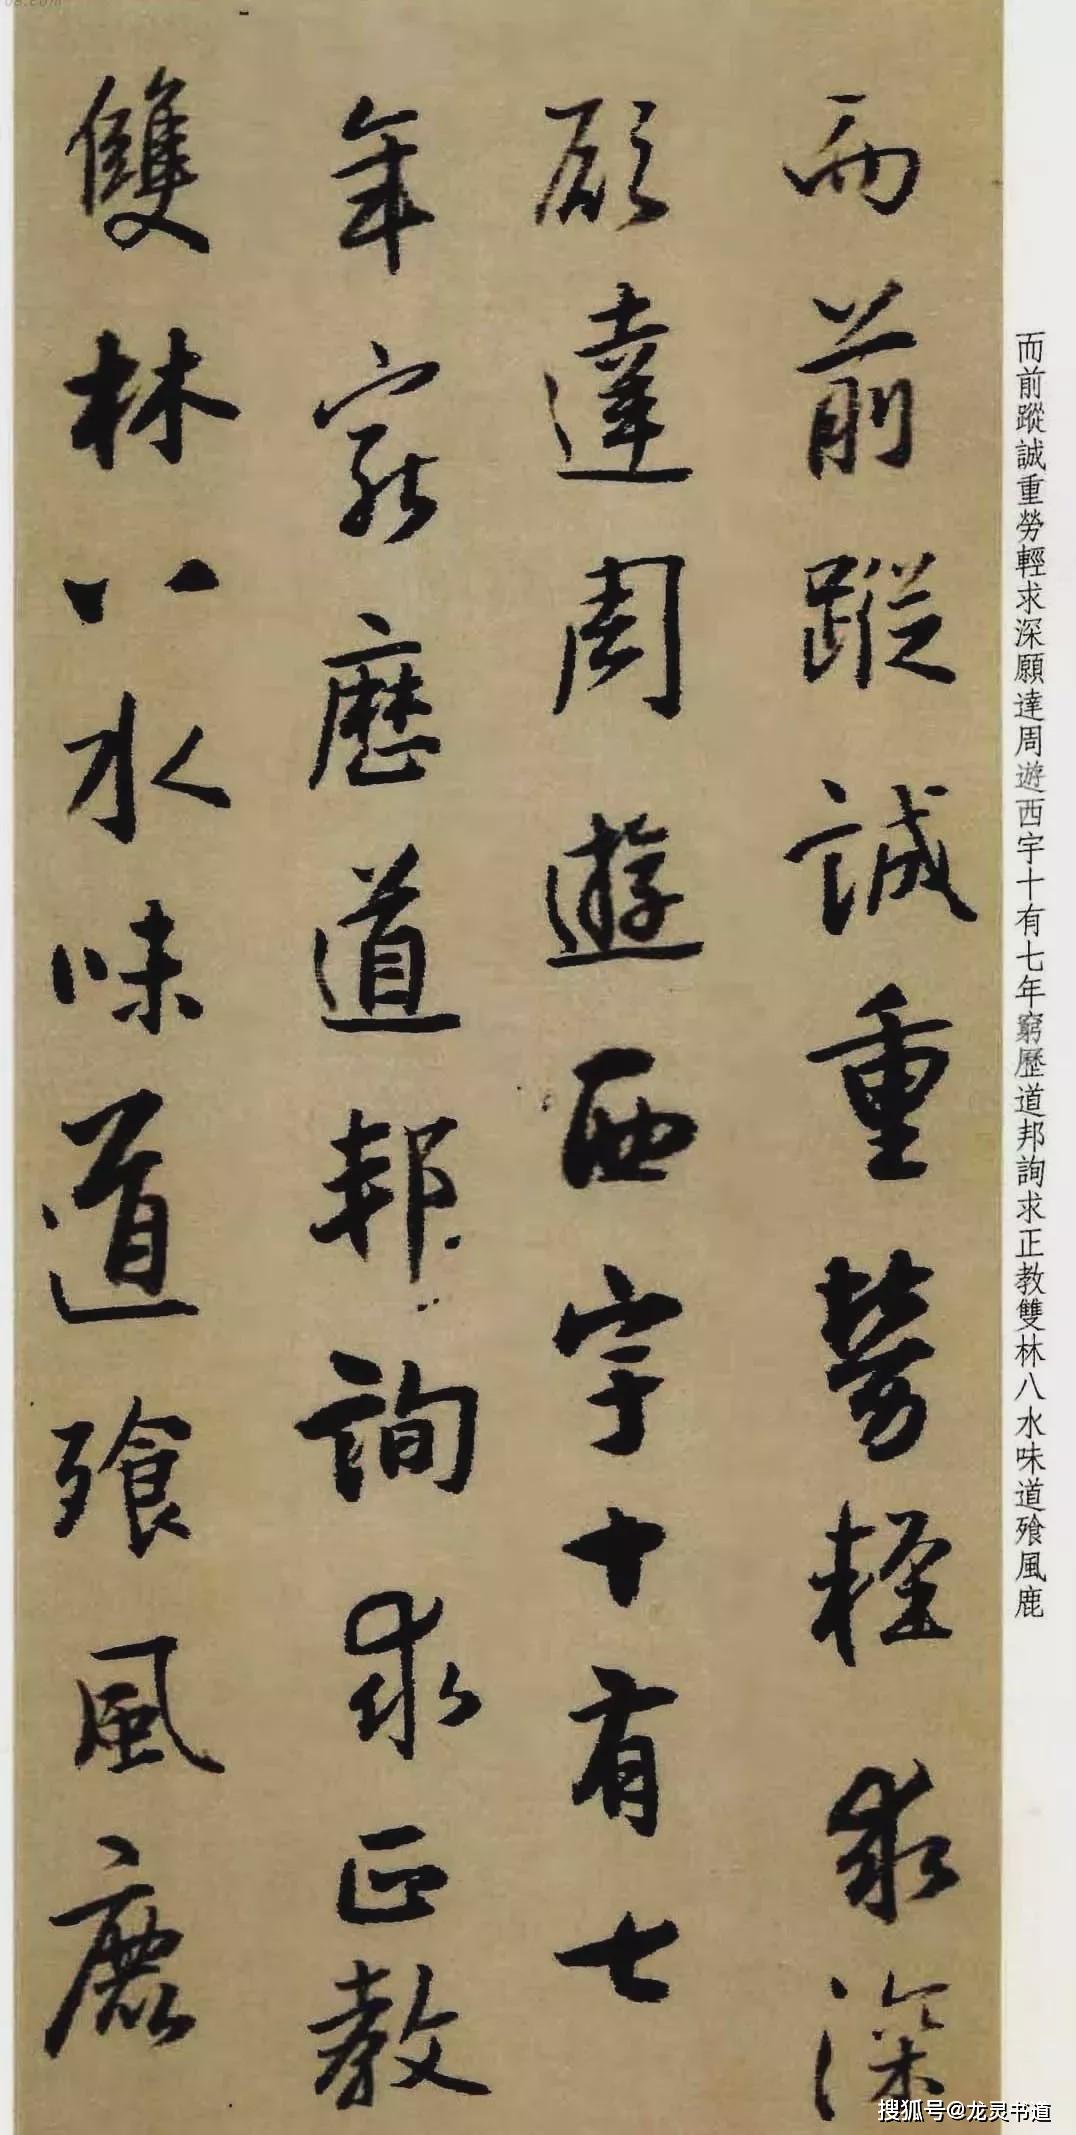 而前蹤誠重勞輕求深
願達周遊西宇十有七
年窮歷道邦詢求正教
雙林八水味道飡風鹿
而前蹤誠重勞輕求深願達周遊西宇十有七年窮歷道邦詢求正教雙林八水味道飡風鹿
搜狐号@龙灵书道